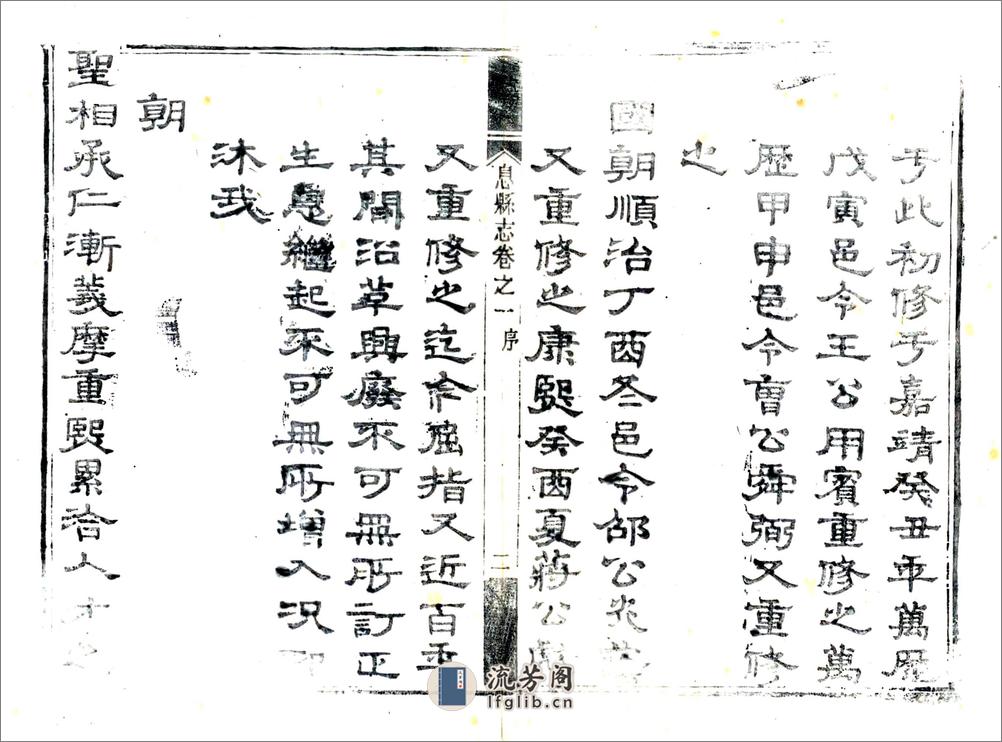 于此初修于嘉靖癸丑年萬曆
戊寅邑令王公用賓重修之萬
歷甲申邑令曹公舜弼又重修
之
國朝順治丁酉冬邑令邵公光
又重修之康熙癸酉夏蔣公
息縣志卷之一 序 二
又重修之迄今屈指又近百年
其間沿革興廢不可無所訂正
生息繼起不可無所增入況
沐我
朝
聖相承仁漸義摩重熙累洽人才
流芳阁
lfglib.cn